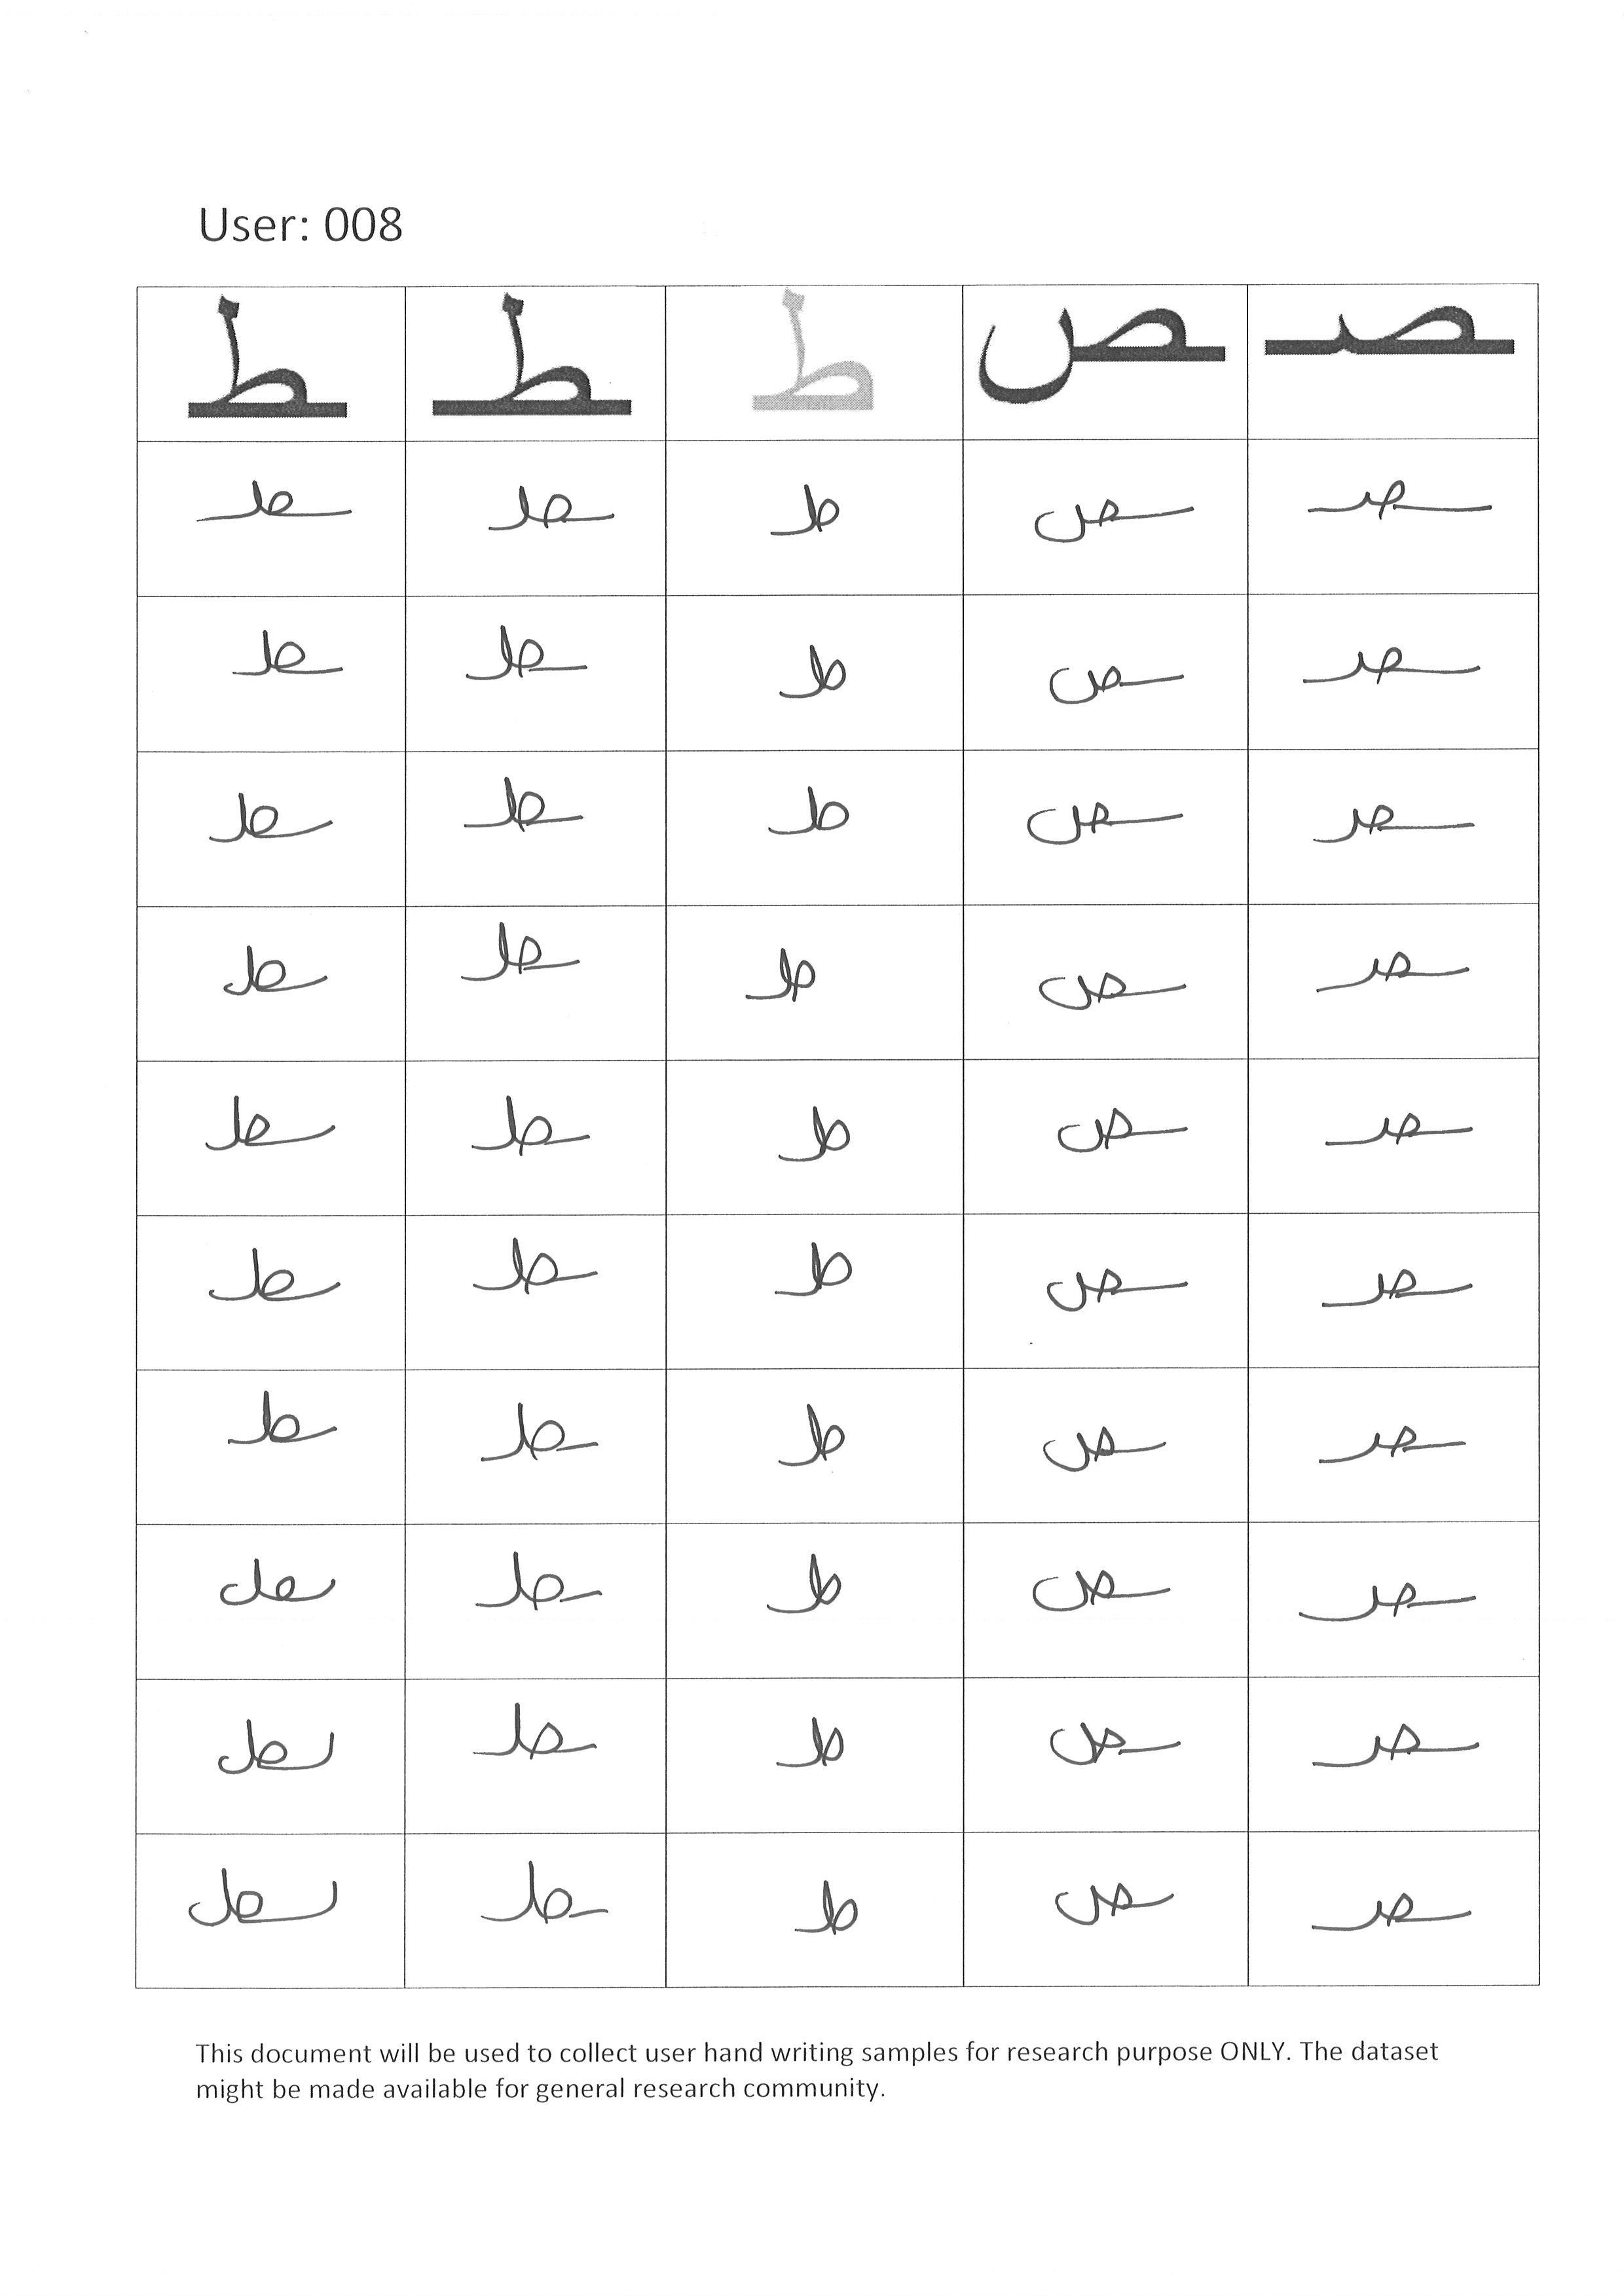 User: 008
ـصـ ـص ط ـطـ ـط
ـصـ ـص ط ـطـ ـط
ـصـ ـص ط ـطـ ـط
ـصـ ـص ط ـطـ ـط
ـصـ ـص ط ـطـ ـط
ـصـ ـص ط ـطـ ـط
ـصـ ـص ط ـطـ ـط
ـصـ ـص ط ـطـ ـط
ـصـ ـص ط ـطـ ـط
ـصـ ـص ط ـطـ ـط
ـصـ ـص ط ـطـ ـط
This document will be used to collect user hand writing samples for research purpose ONLY. The dataset
might be made available for general research community.